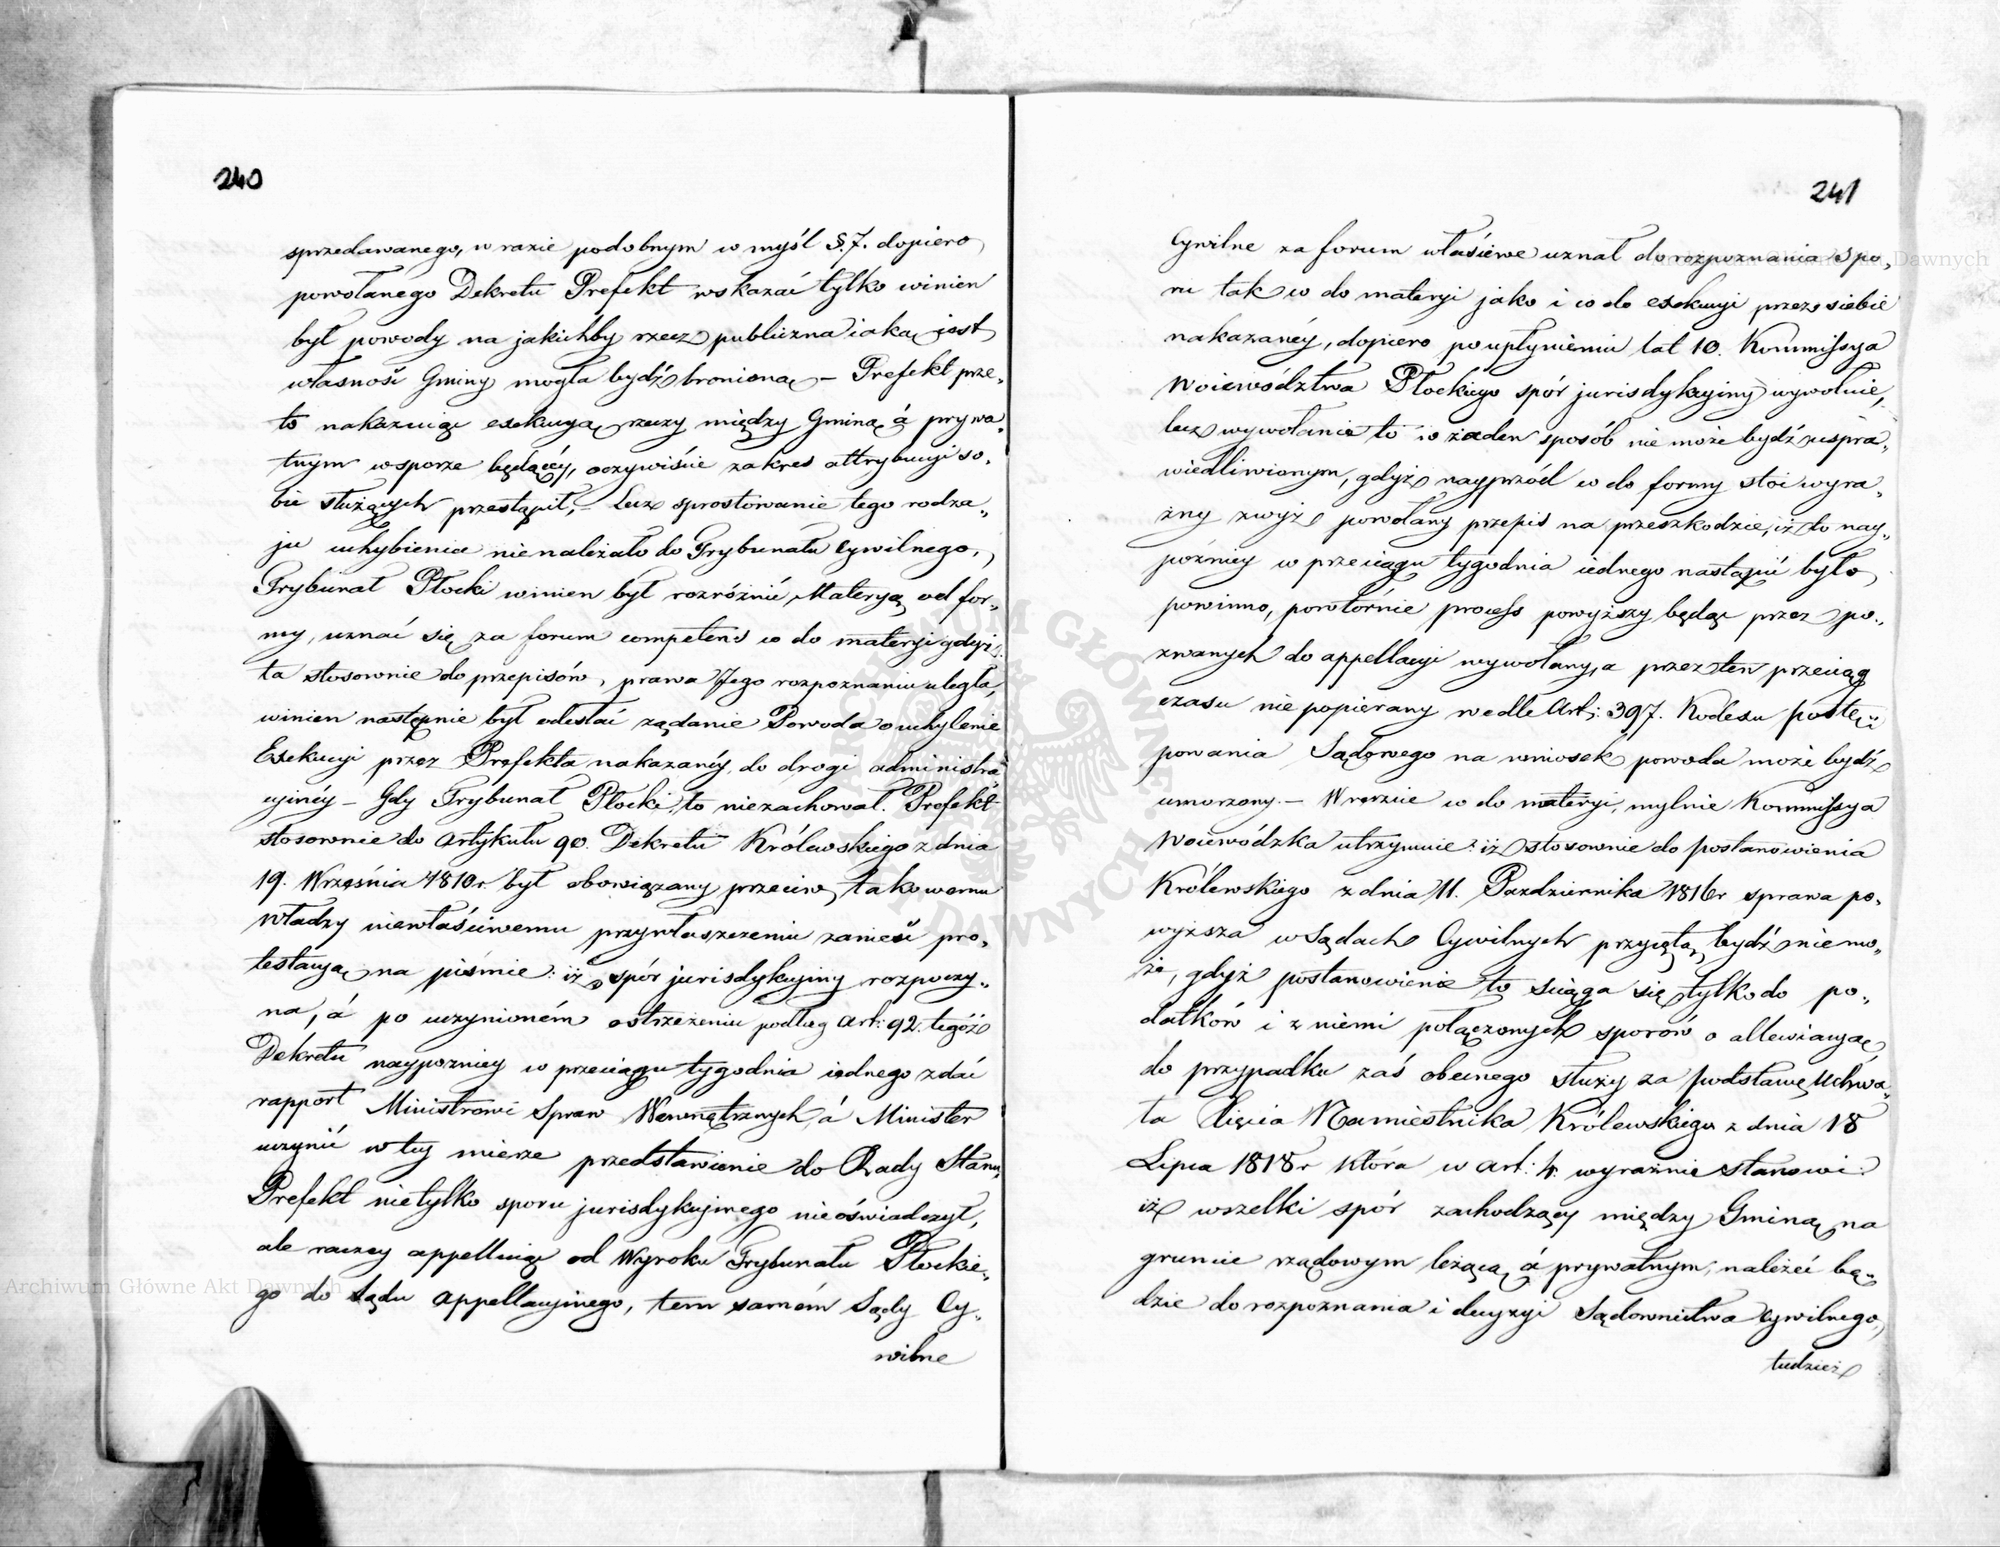 240
sprzedawanego, w razie podobnym w myśl §. 7. dopiero
powołanego Dekretu Prefekt wskazać tylko winien
był powody na jakichby rzecz publiczna iaką jest
własność Gminy mogła bydź bronioną – Prefekt prze„
to nakazuiąc exekucyą rzeczy między Gminą á prywa„
tnym w sporze będącéy, oczywiście zakres attrybucyi so„
bie służących przestąpił, Lecz sprostowanie tego rodza„
ju uchybienia nienależało do Trybunału Cywilnego,
Trybunał Płocki winien był rozróżnić Materyą od for„
my, uznać się za forum competens co do materyi gdyż
ta stosownie do przepisów, prawa Jego rozpoznaniu uległa,
winien następnie był odesłać żądanie Powoda o uchylenie
Exekucyi przez Prefekta nakazanéy, do drogi administra„
cyinéy – Gdy Trybunał Płocki to niezachował. Prefekt
stosownie do Artykułu 90. Dekretu Królewskiego z dnia
19. Września 1810r. był obowiązany przeciw takowemu
Władzy niewłaściwemu przywłaszczeniu zanieść pro„
testacyą na piśmie: iż spór jurisdykcyiny rozpoczy„
na, á po uczynioném ostrzeżeniu podług Art: 92. tegóż
Dekretu naypozniey w przeciągu tygodnia iednego zdać
rapport Ministrowi Spraw Wewnętrznych, á Minister
uczynić w tey mierze przedstawienie do Rady Stanu,
Prefekt nietylko sporu jurisdykcyinego nieoświadczył,
ale raczey appelluiąc od Wyroku Trybunału Płockie„
go do Sądu Appellacyinego, tem samém Sądy Cy„
wilne
241
Cywilne za forum właściwe uznał do rozpoznania spo„
ru tak co do materyi jako i co do exekucyi przez siebie
nakazanéy, dopiero po upłynieniu lat 10. Kommissya
Woiewództwa Płockiego spór jurisdykcyiny wywołuie,
lecz wywołanie to w żaden sposób nie może bydź uspra„
wiedliwionym, gdyż nayprzód co do formy stoi wyra„
źny zwyż powołany przepis na przeszkodzie, iż to nay„
poźniey w przeciągu tygodnia iednego nastąpić było
powinno, powtórnie process powyższy będąc przez po„
zwanych do appellacyi wywołany, a przez ten przeciąg
czasu nie popierany wedle Art: 397. Kodexu postę„
powania Sądowego na wniosek powoda może bydź
umorzony. – Wrzeczie co do materyi, mylnie Kommissya
Woiewódzka utrzymuie: iż stosownie do postanowienia
Królewskiego z dnia 11. Pazdziernika 1816r sprawa po„
wyższa w Sądach Cywilnych przyiętą bydź nie mo„
że, gdyż postanowienie to sciąga się tylko do po„
datków i z niemi połączonych sporów o allewiacyą
do przypadku zaś obecnego służy za podstawę Uchwa„
ła Xięcia Namiestnika Królewskiego z dnia 18
Lipca 1818r która w art: 4. wyraźnie stanowi:
iż wszelki spór zachodzący między Gminą na
gruncie rządowym leżącą á prywatnym, należeć bę„
dzie do rozpoznania i decyzyi Sądownictwa Cywilnego,
tudzież
Archiwum Główne Akt Dawnych
ARCHIWUM GŁÓWNE AKT DAWNYCH